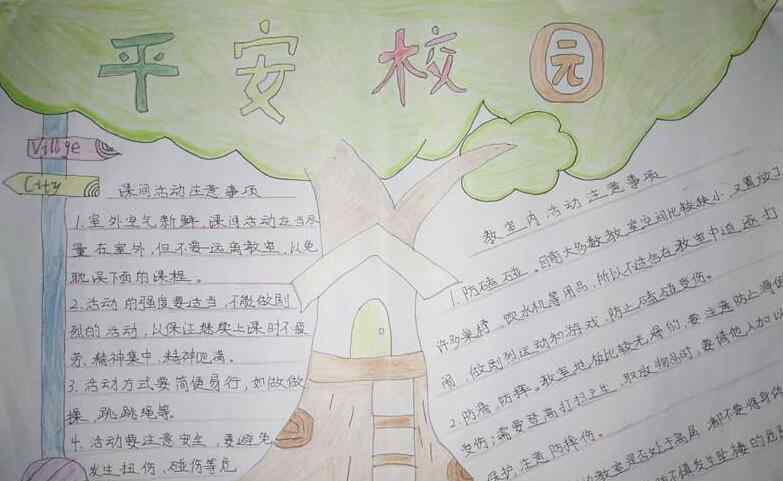 平安校园
Village
City
课间活动注意事项
1.室外空气新鲜,课间活动应当尽
量在室外,但不要远离教室,以免
耽误下面的课程。
2.活动的强度要适当,不能做剧
烈的活动,以保证继续上课时不疲
劳、精神集中、精神饱满。
3.活动方式要简便易行,如做做
操,跳跳绳等。
4.活动要注意安全,要避免
发生扭伤,碰伤等危
教室内活动注意事项
1.防磕碰。目前大多数教室空间比较狭小,又置放了
许多桌椅、饮水机等用品,所以不应该在教室中追逐打
闹,做剧烈运动和游戏,防止磕碰受伤。
2.防滑,防摔。教室地板比较光滑的,要注意防止滑倒
受伤;需要登高打扫卫生,取放物品时,要请他人加以
保护,注意防摔伤。
教室是否处于高层,都不要将身体
发生坠楼的危